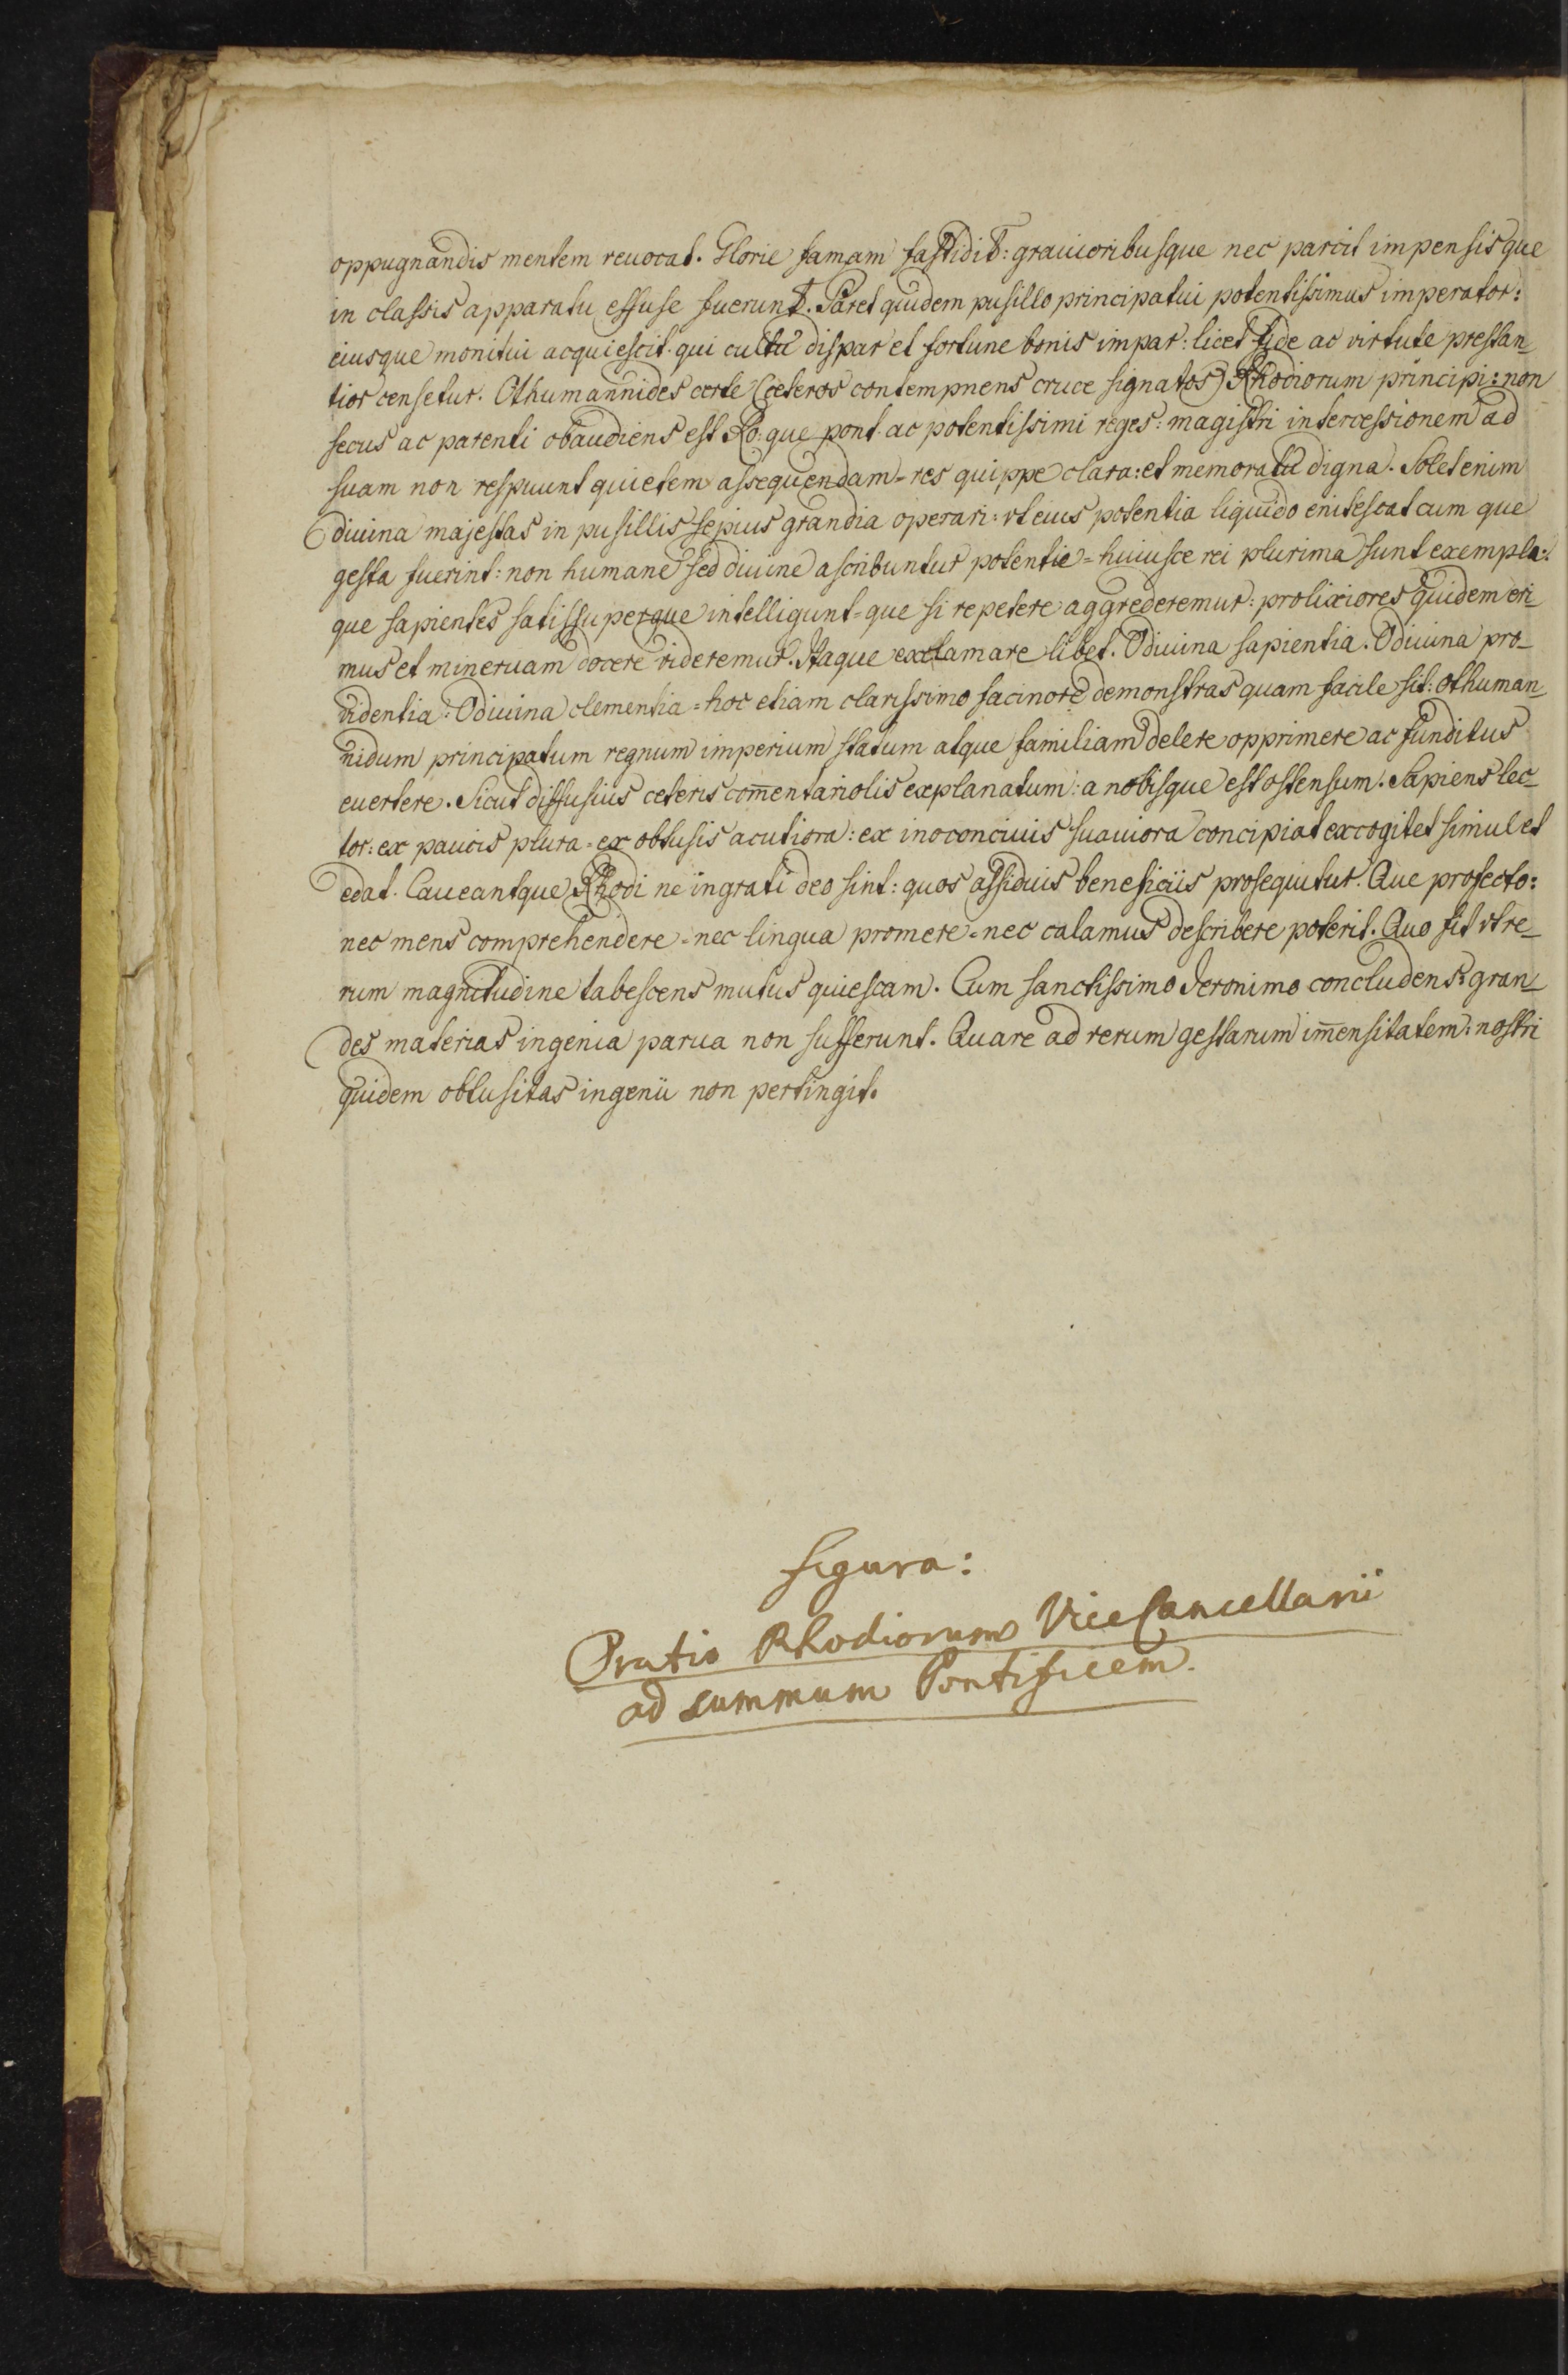 oppugnandis mentem reuocat. Glorie famam fastidit: grauioribusque nec parcit impensis que
in classis apparatu effuse fuerunt. Paret quidem pusillo principatui potentissimus imperator:
eiusque monitui acquiescit. qui cultu dispar et fortune bonis impar: licet fide ac virtute prestan_
tior censetur. Othumannides certe (ceteros contempnens cruce signatos) Rhodiorum principi: non
secus ac parenti obaudiens est Ro: que pont. ac potentissimi reges: magistri intercessionem ad
suam non respuunt quietem assequendam = res quippe clara: et memoratu digna. Solet enim
diuina majestas in pusillis sepius grandia operari: vt eius potentia liquido enitescat cum que
gesta fuerint: non humane sed diuine ascribuntur potentie = huiusce rei plurima sunt exempla:
que sapientes satis superque intelligunt = que si repetere aggrederemur: prolixiores quidem eri_
mus et mineruam docere videremur. Itaque exclamare libet. O diuina sapientia. O diuina pro_
videntia: O diuina clementia = hoc etiam clarissimo facinore demonstras quam facile sit: othuman_
nidum principatum regnum imperium statum atque familiam delere opprimere ac funditus
euertere. Sicut diffusius ceteris com̄entariolis explanatum: a nobisque est ostensum. Sapiens lec_
tor: ex paucis plura = ex obtusis acutiora: ex inconcinnis suauiora concipiat excogitet simul et
edat. Caueantque Rhodi ne ingrati deo sint: quos assiduis beneficiis prosequitur. Que profecto:
nec mens comprehendere = nec lingua promere = nec calamus describere poterit. Quo fit vt re_
rum magnitudine tabescens mutus quiescam. Cum sanctissimo Ieronimo concludens: gran_
des materias ingenia parua non sufferunt. Quare ad rerum gestarum im̄ensitatem: nostri
quidem obtusitas ingenii non pertingit.
figura:
Oratio Rhodiorum ViceCancellarii
ad summum Pontificem.